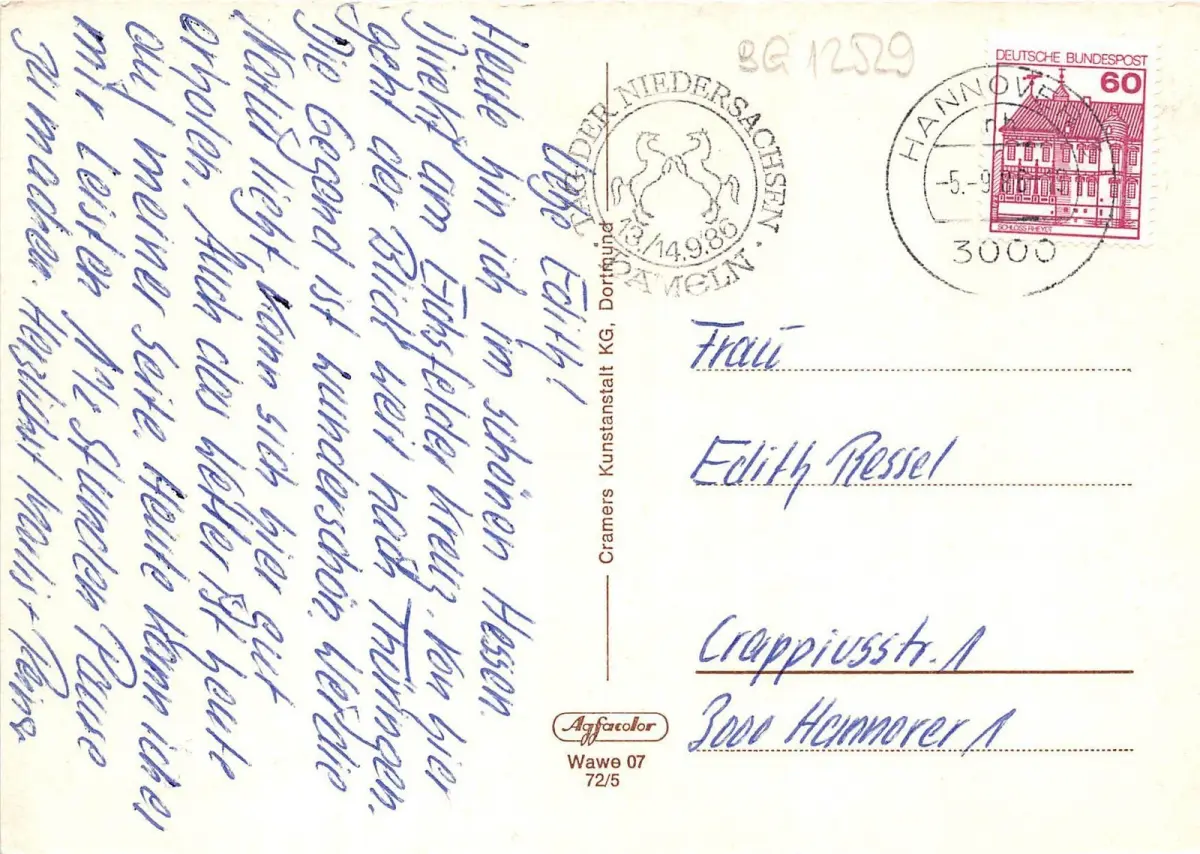 BG 12529
DEUTSCHE BUNDESPOST
60
SCHLOSS RHEYDT
HANNOVER
-5.-9.86
3000
TAG DER NIEDERSACHSEN
13./14.9.86
HAMELN
Liebe Edith!
Heute bin ich im schönen Hessen.
Direkt am Eichsfelder Kreuz. Von hier
geht der Blick weit nach Thüringen.
Die Gegend ist wunderschön. Wer die
Natur liebt, kann sich hier gut
erholen. Auch das Wetter ist heute
auf meiner Seite. Heute kann ich es
mir leisten 1½ Stunden Pause
zu machen. Herzlichst
Cramers Kunstanstalt KG, Dortmund
Agfacolor
Wawe 07
72/5
Frau
Edith Ressel
Crappiusstr. 1
3000 Hannover 1